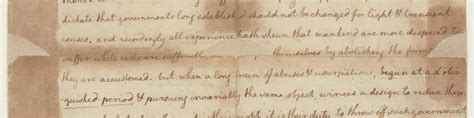 dictate that governments long established should not be changed for light & transient
causes. and accordingly all experience hath shewn that mankind are more disposed to
suffer while evils are sufferable, than to themselves by abolishing the forms
they are accustomed. but when a long train of abuses & usurpations, begun at a distin
guished period & pursuing invariably the same object, evinces a design to reduce them
it is their duty to throw off such government